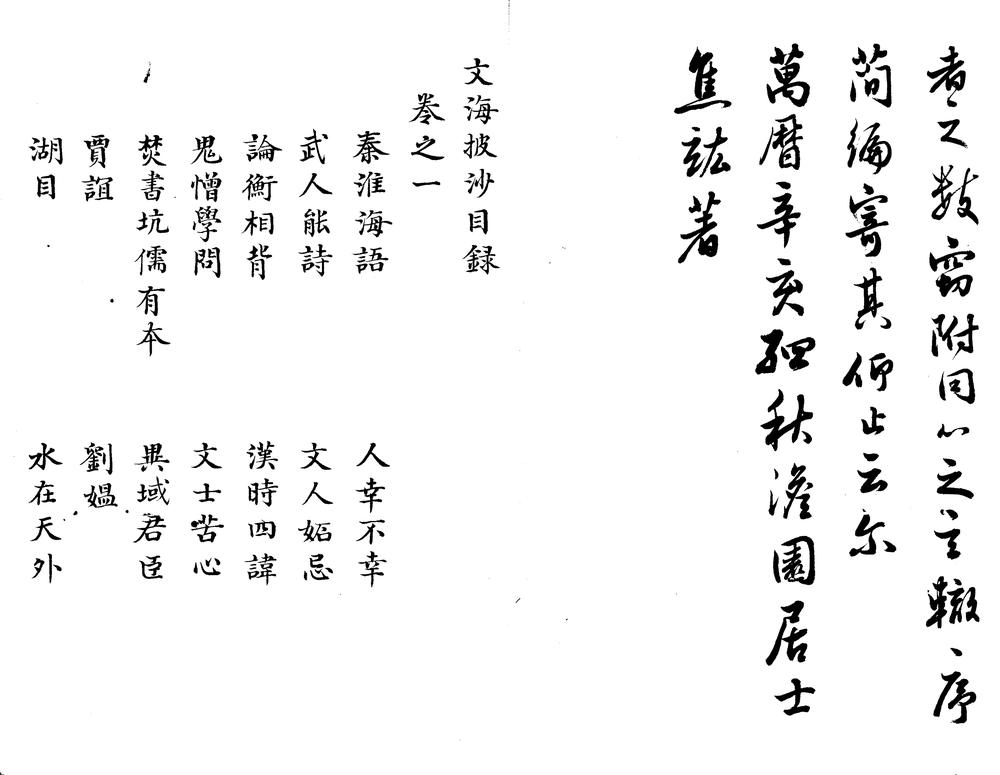 者之數竊附同心之言輙序
簡編寄其仰止云尔
萬曆辛亥孟秋澹園居士
焦竑著
文海披沙目録
卷之一
秦淮海語 人幸不幸
武人能詩 文人妬忌
論衡相背 漢時四諱
鬼憎學問 文士苦心
焚書坑儒有本 異域君臣
賈誼 劉媼
湖目 水在天外